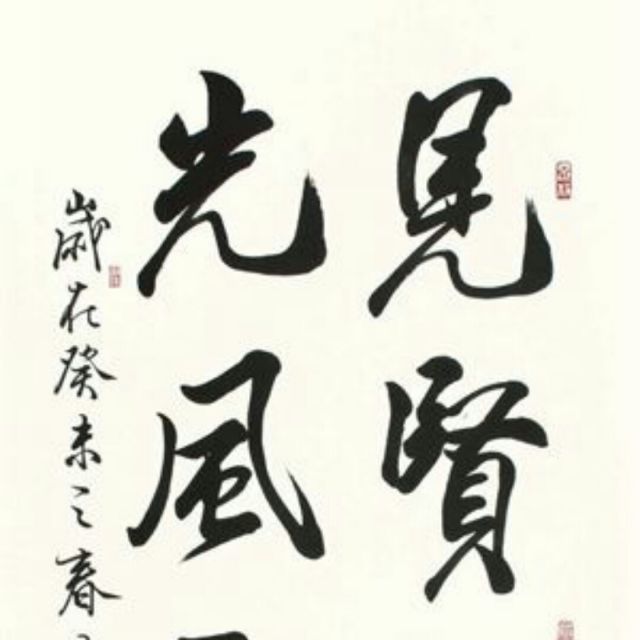 見賢
光風
歲在癸未之春